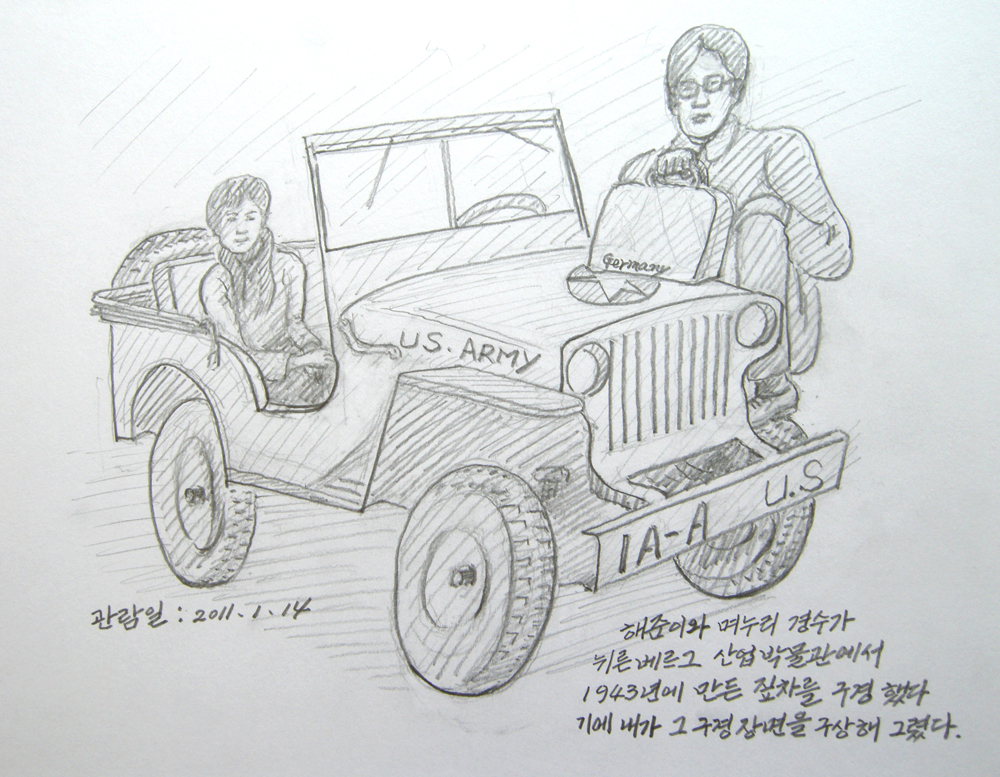 Germany
U.S. ARMY
U.S
1A-A
관람일 : 2011. 1. 14
해준이와 며누리 경수가
뉘른베르그 산업박물관에서
1943년에 만든 짚차를 구경 했다
기에 내가 그 구경장면을 구상해 그렸다.